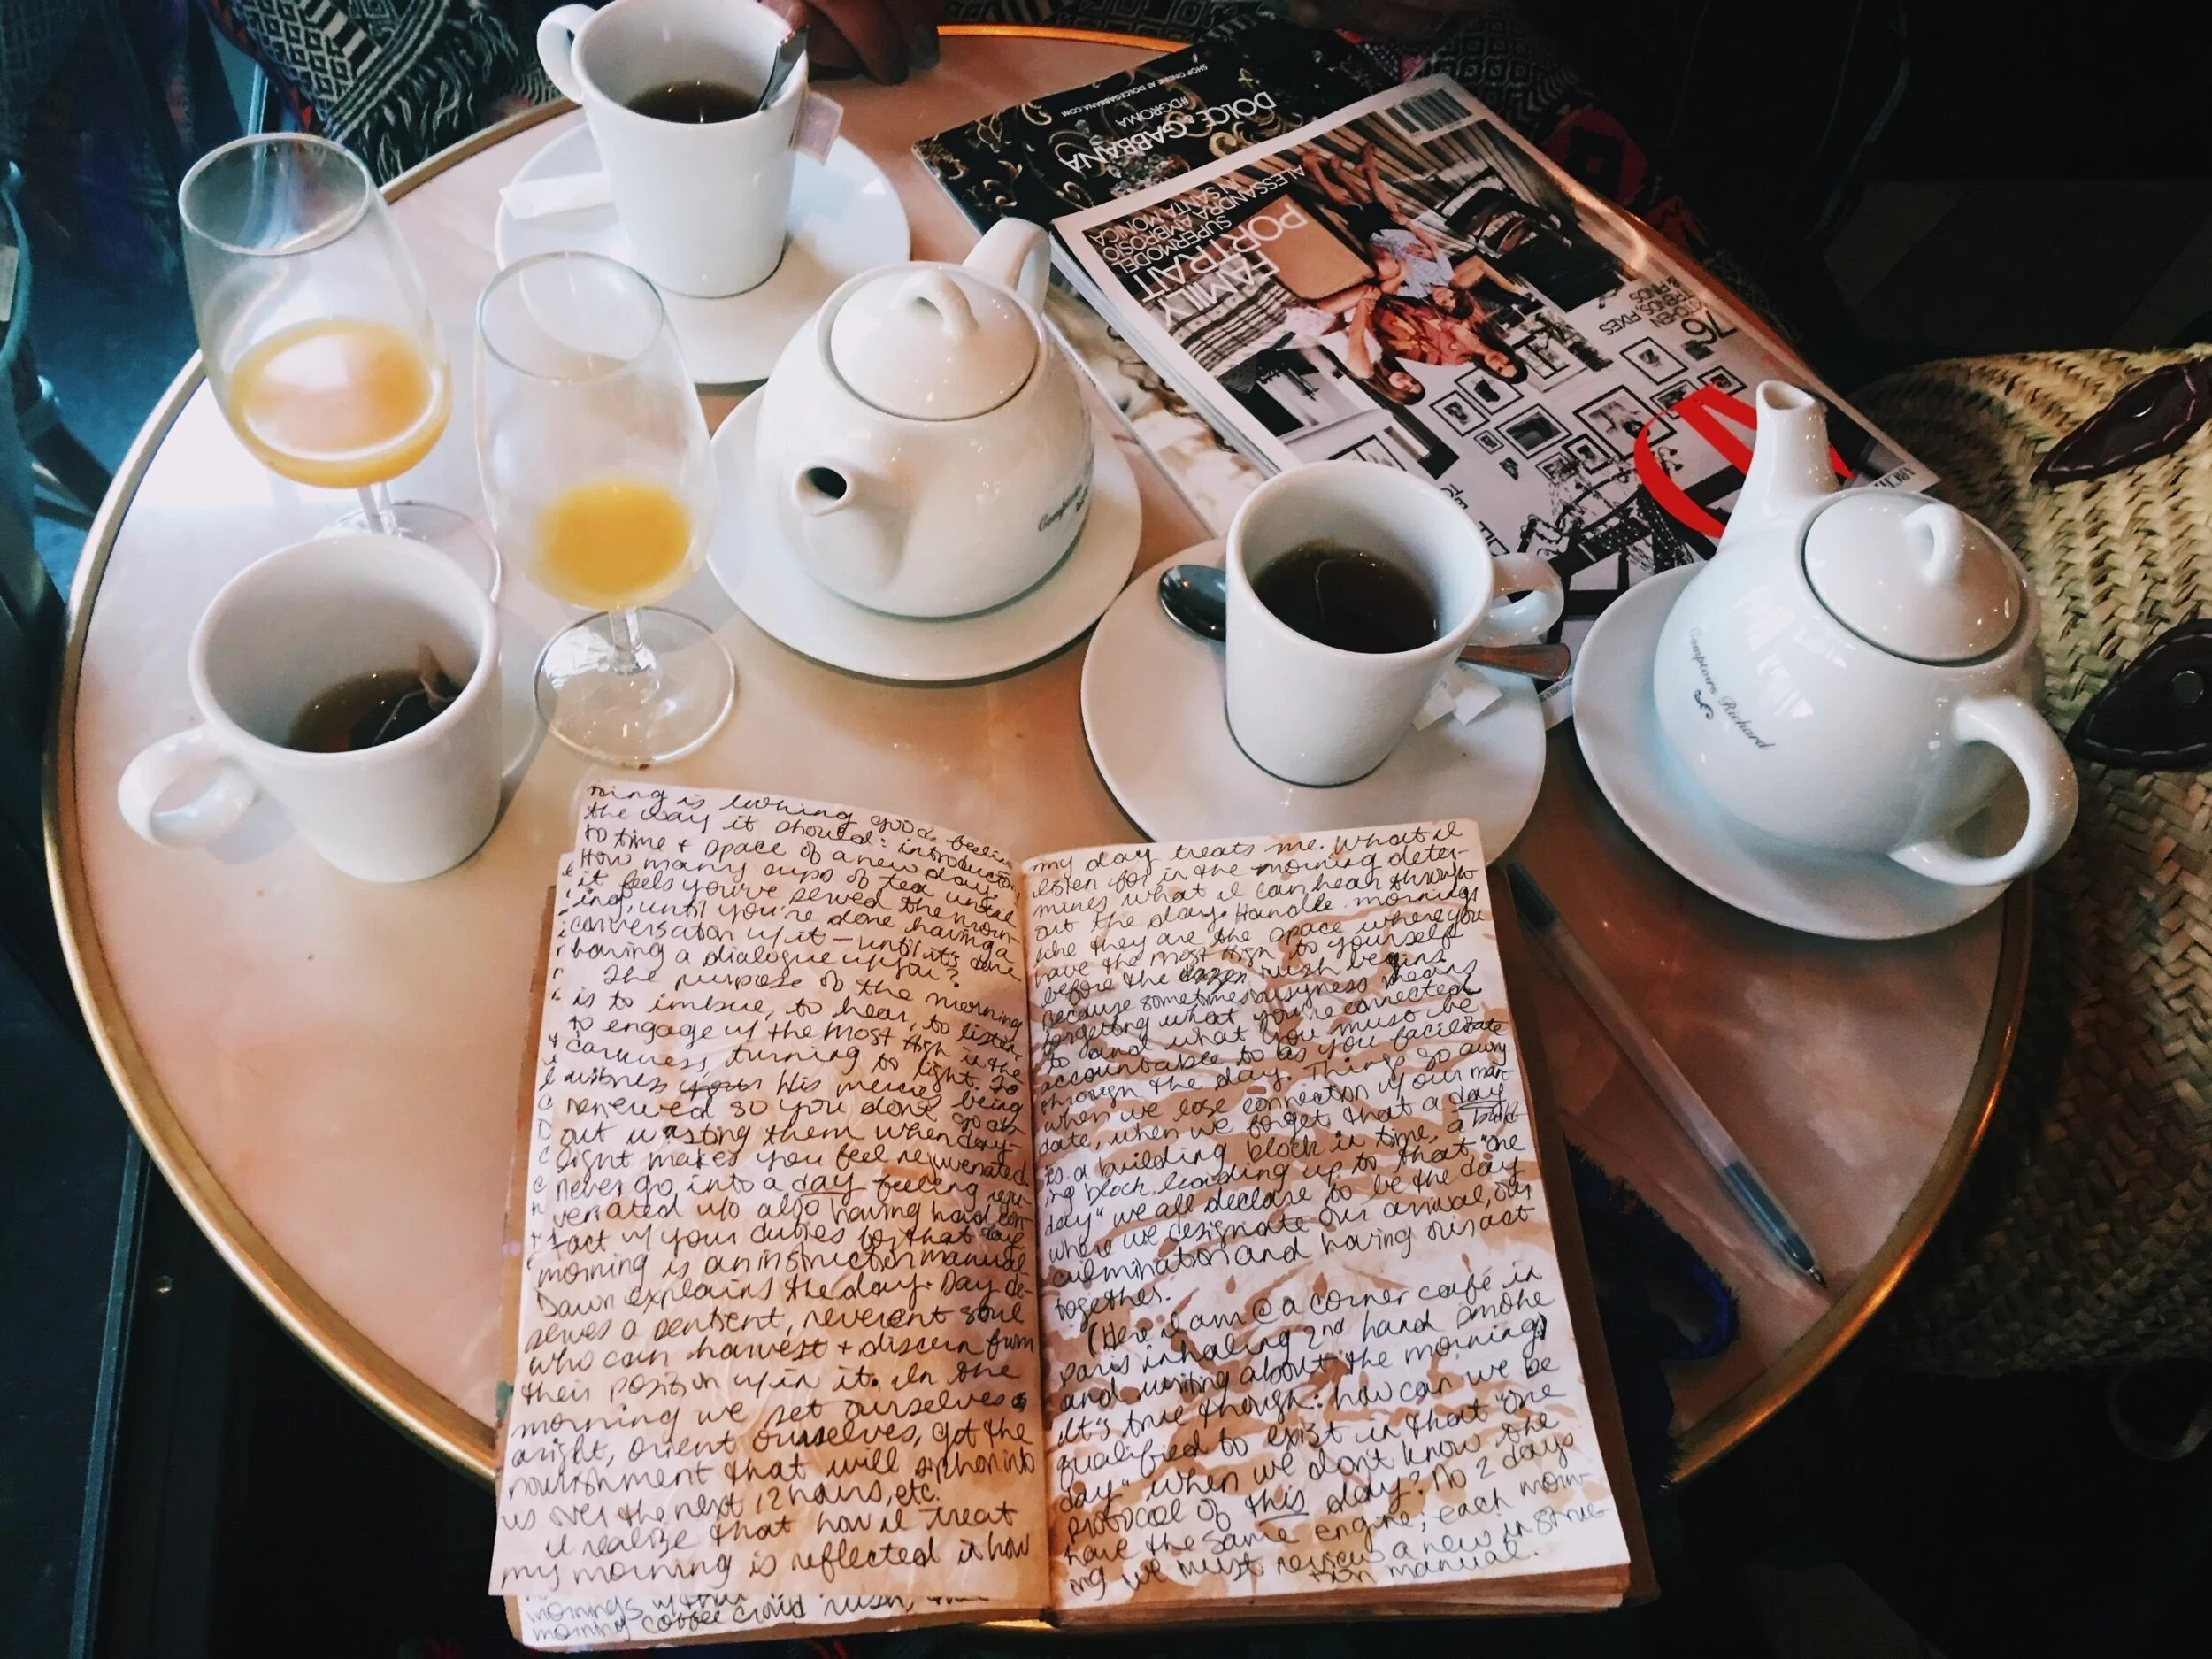 SHOP ONLINE AT DOLCEGABBANA.COM
#DGROMA
DOLCE & GABBANA
FAMILY
PORTRAIT
SUPERMODEL
ALESSANDRA AMBROSIO
IN SANTA MONICA
76
KITCHEN
TRENDS, FIXES
& FINDS
Comptoirs
Comptoirs Richard
ning is looking good, feeling
the way it should: introduction
to time + space of a new day.
How many cups of tea until
it feels you've served the morn-
ing, until you're done having a
conversation w/ it — until it's done
having a dialogue w/ you?
The purpose of the morning
is to imbue, to hear, to listen,
to engage w/ the Most High in the
darkness, turning to light. To
witness His mercies being
renewed so you don't go ab-
out wasting them when day-
light makes you feel rejuvenated.
Never go into a day feeling reju-
venated w/o also having had con-
tact w/ your duties for that day.
morning is an instruction manual
Dawn explains the day. Day de-
serves a sentient, reverent soul
who can harvest + discern from
their position w/in it. In the
morning we set ourselves
aright, orient ourselves, get the
nourishment that will siphon into
us over the next 12 hours, etc.
I realize that how I treat
my morning is reflected in how
mornings
morning coffee crowd rush,
my day treats me. What I
listen for in the morning deter-
mines what I can hear through-
out the day. Handle mornings
like they are the space where you
have the Most High to yourself
before the rush begins.
Because sometimes busyness means
forgetting what you're connected
to and what you must be
accountable to as you facilitate
through the day. Things go awry
when we lose connection w/ our man-
date, when we forget that a day
is a building block in time, a build-
ing block leading up to that "one
day" we all declare to be the day
where we designate our arrival, our
culmination and having our act
together.
(Here I am @ a corner café in
Paris inhaling 2nd hand smoke
and writing about the morning)
It's true though: how can we be
qualified to exist in that "one
day" when we don't know the
protocol of this day? No 2 days
have the same engine; each morn-
ing we must review a new instruc-
tion manual.